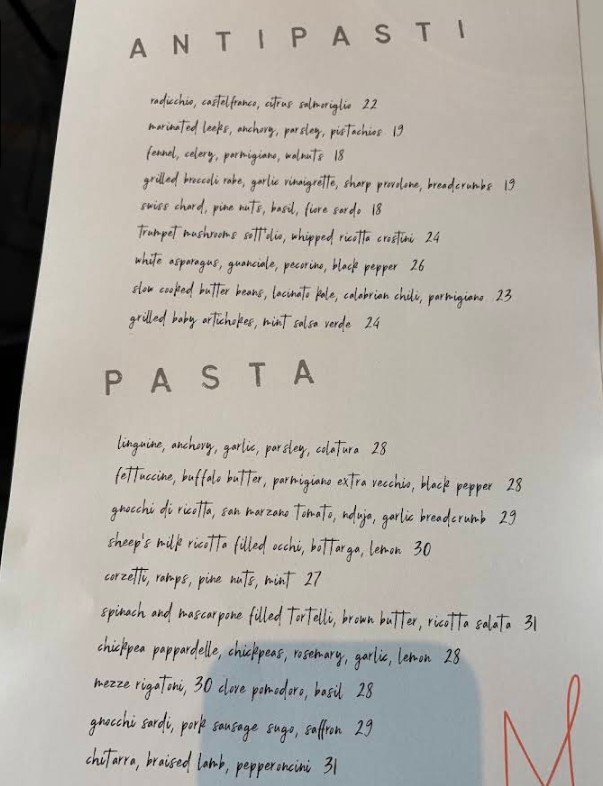 ANTIPASTI
radicchio, castelfranco, citrus salmoriglio 22
marinated leeks, anchovy, parsley, pistachios 19
fennel, celery, parmigiano, walnuts 18
grilled broccoli rabe, garlic vinaigrette, sharp provolone, breadcrumbs 19
swiss chard, pine nuts, basil, fiore sardo 18
trumpet mushrooms sott'olio, whipped ricotta crostini 24
white asparagus, guanciale, pecorino, black pepper 26
slow cooked butter beans, lacinato kale, calabrian chili, parmigiano 23
grilled baby artichokes, mint salsa verde 24
PASTA
linguine, anchovy, garlic, parsley, colatura 28
fettuccine, buffalo butter, parmigiano extra vecchio, black pepper 28
gnocchi di ricotta, san marzano tomato, nduja, garlic breadcrumb 29
sheep's milk ricotta filled occhi, bottarga, lemon 30
corzetti, ramps, pine nuts, mint 27
spinach and mascarpone filled tortelli, brown butter, ricotta salata 31
chickpea pappardelle, chickpeas, rosemary, garlic, lemon 28
mezze rigatoni, 30 clove pomodoro, basil 28
gnocchi sardi, pork sausage sugo, saffron 29
chitarra, braised lamb, pepperoncini 31
M